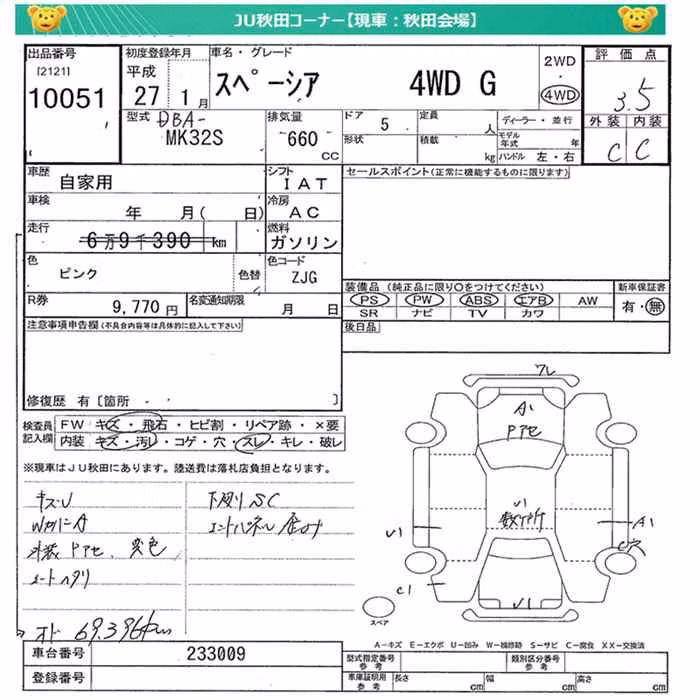 JU秋田コーナー【現車：秋田会場】
出品番号 初度登録年月 車名・グレード 2WD 評価点
[2121] 平成 ・
10051 27 1月 スペーシア 4WD G 4WD 3.5
型式 DBA- 排気量 ドア 5 定員 人 ディーラー・並行 外装 内装
MK32S 660 CC 形状 積載 kg モデル年式 年 C C
ハンドル 左・右
車歴 自家用 シフト IAT セールスポイント(正常に機能するものに限ります)
車検 年 月( 日) 冷房 AC
走行 6万9千390km 燃料 ガソリン
色 ピンク 色替 色コード ZJG
装備品(純正品に限り○をつけてください) 新車保証書
R券 9,770円 名変通知期限 月 日 PS PW ABS エアB AW 有・無
SR ナビ TV カワ
注意事項申告欄(不具合内容等は具体的に記入して下さい) 後日品
修復歴 有〔箇所 ・ 〕
検査員記入欄 FW キズ・飛石・ヒビ割・リペア跡・×要
内装 キズ・汚レ・コゲ・穴・スレ・キレ・破レ
※現車はJU秋田にあります。陸送費は落札店負担となります。
ワレ
A1
Pアセ
U1
数ケ所
U1 A1
C穴
C1
U1
スペア
キズU 下廻りSC
W大小A エンドパネル 曲ゲ
外装 Pアセ 変色
シートヘタリ
オド 69,396km
A－キズ E－エクボ U－凹み W－補修跡 S－サビ C－腐食 XX－交換済
車台番号 233009 型式指定番号 参考 類別区分番号 参考
登録番号 車庫証明用 参考 長さ cm 幅 cm 高さ cm